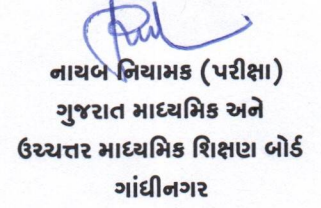 નાયબ નિયામક (પરીક્ષા)
ગુજરાત માધ્યમિક અને
ઉચ્ચત્તર માધ્યમિક શિક્ષણ બોર્ડ
ગાંધીનગર